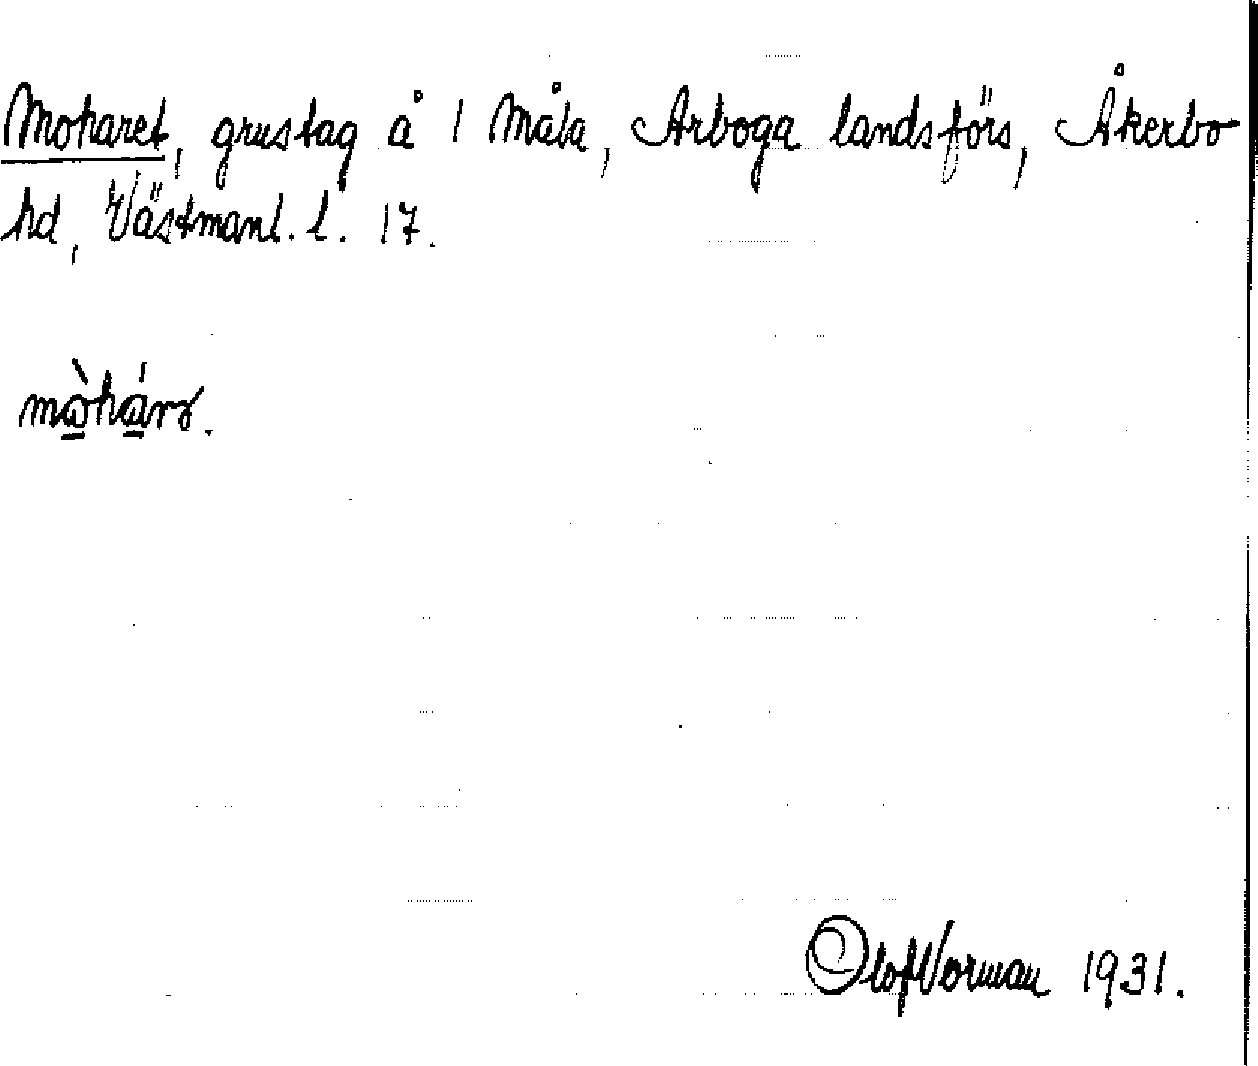 Moharet, grustag å 1 Måla, Arboga landsförs, Åkerbo
hd, Västmanl. l. 17.
mò̲há̲rə.
Olof Norman 1931.